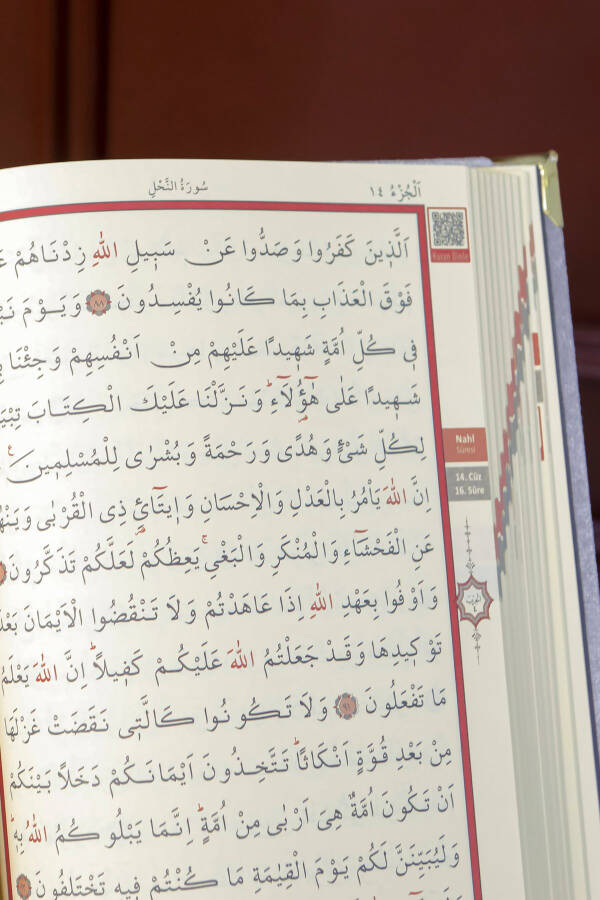 سُورَةُ النَّحْلِ
اَلْجُزْءُ ١٤
اَلَّذٖينَ كَفَرُوا وَصَدُّوا عَنْ سَبٖيلِ اللّٰهِ زِدْنَاهُمْ
فَوْقَ الْعَذَابِ بِمَا كَانُوا يُفْسِدُونَ ٨٨ وَيَوْمَ
فٖى كُلِّ اُمَّةٍ شَهٖيدًا عَلَيْهِمْ مِنْ اَنْفُسِهِمْ وَجِئْنَا
شَهٖيدًا عَلٰى هٰٓؤُلَٓاءِۜ وَنَزَّلْنَا عَلَيْكَ الْكِتَابَ
لِكُلِّ شَىْءٍ وَهُدًى وَرَحْمَةً وَبُشْرٰى لِلْمُسْلِمٖينَ
اِنَّ اللّٰهَ يَاْمُرُ بِالْعَدْلِ وَالْاِحْسَانِ وَاٖيتَٓائِ ذِى الْقُرْبٰى
عَنِ الْفَحْشَٓاءِ وَالْمُنْكَرِ وَالْبَغْىِۚ يَعِظُكُمْ لَعَلَّكُمْ تَذَكَّرُونَ
وَاَوْفُوا بِعَهْدِ اللّٰهِ اِذَا عَاهَدْتُمْ وَلَا تَنْقُضُوا الْاَيْمَانَ
تَوْكٖيدِهَا وَقَدْ جَعَلْتُمُ اللّٰهَ عَلَيْكُمْ كَفٖيلًاۜ اِنَّ اللّٰهَ يَعْلَمُ
مَا تَفْعَلُونَ ٩١ وَلَا تَكُونُوا كَالَّتٖى نَقَضَتْ غَزْلَهَا
مِنْ بَعْدِ قُوَّةٍ اَنْكَاثًاۜ تَتَّخِذُونَ اَيْمَانَكُمْ دَخَلًا بَيْنَكُمْ
اَنْ تَكُونَ اُمَّةٌ هِىَ اَرْبٰى مِنْ اُمَّةٍۜ اِنَّمَا يَبْلُوكُمُ اللّٰهُ بِهٖۜ
وَلَيُبَيِّنَنَّ لَكُمْ يَوْمَ الْقِيٰمَةِ مَا كُنْتُمْ فٖيهِ تَخْتَلِفُونَ
Kuran Dinle
Nahl
Sûresi
14. Cüz
16. Sûre